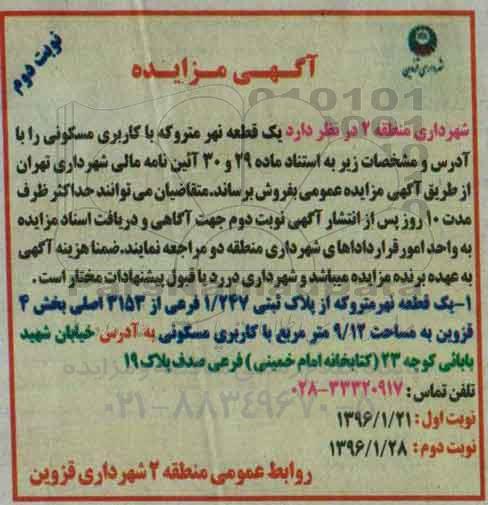 شهرداری قزوین
نوبت دوم
آگهی مزایده
شهرداری منطقه ۲ در نظر دارد یک قطعه نهر متروکه با کاربری مسکونی را با
آدرس و مشخصات زیر به استناد ماده ۲۹ و ۳۰ آئین نامه مالی شهرداری تهران
از طریق آگهی مزایده عمومی بفروش برساند. متقاضیان می توانند حداکثر ظرف
مدت ۱۰ روز پس از انتشار آگهی نوبت دوم جهت آگاهی و دریافت اسناد مزایده
به واحد امور قراردادها ی شهرداری منطقه دو مراجعه نمایند. ضمنا هزینه آگهی
به عهده برنده مزایده میباشد و شهرداری در رد یا قبول پیشنهادات مختار است.
۱-یک قطعه نهر متروکه از پلاک ثبتی ۱/۲۴۷ فرعی از ۳۱۵۳ اصلی بخش ۴
قزوین به مساحت ۹/۱۲ متر مربع با کاربری مسکونی به آدرس خیابان شهید
بابائی کوچه ۲۳ (کتابخانه امام خمینی) فرعی صدف پلاک ۱۹
تلفن تماس: ۳۳۳۲۰۹۱۷-۰۲۸
۰۲۱-۸۸۳۴۹۶۷۰
نوبت اول: ۱۳۹۶/۱/۲۱
نوبت دوم: ۱۳۹۶/۱/۲۸
روابط عمومی منطقه ۲ شهرداری قزوین